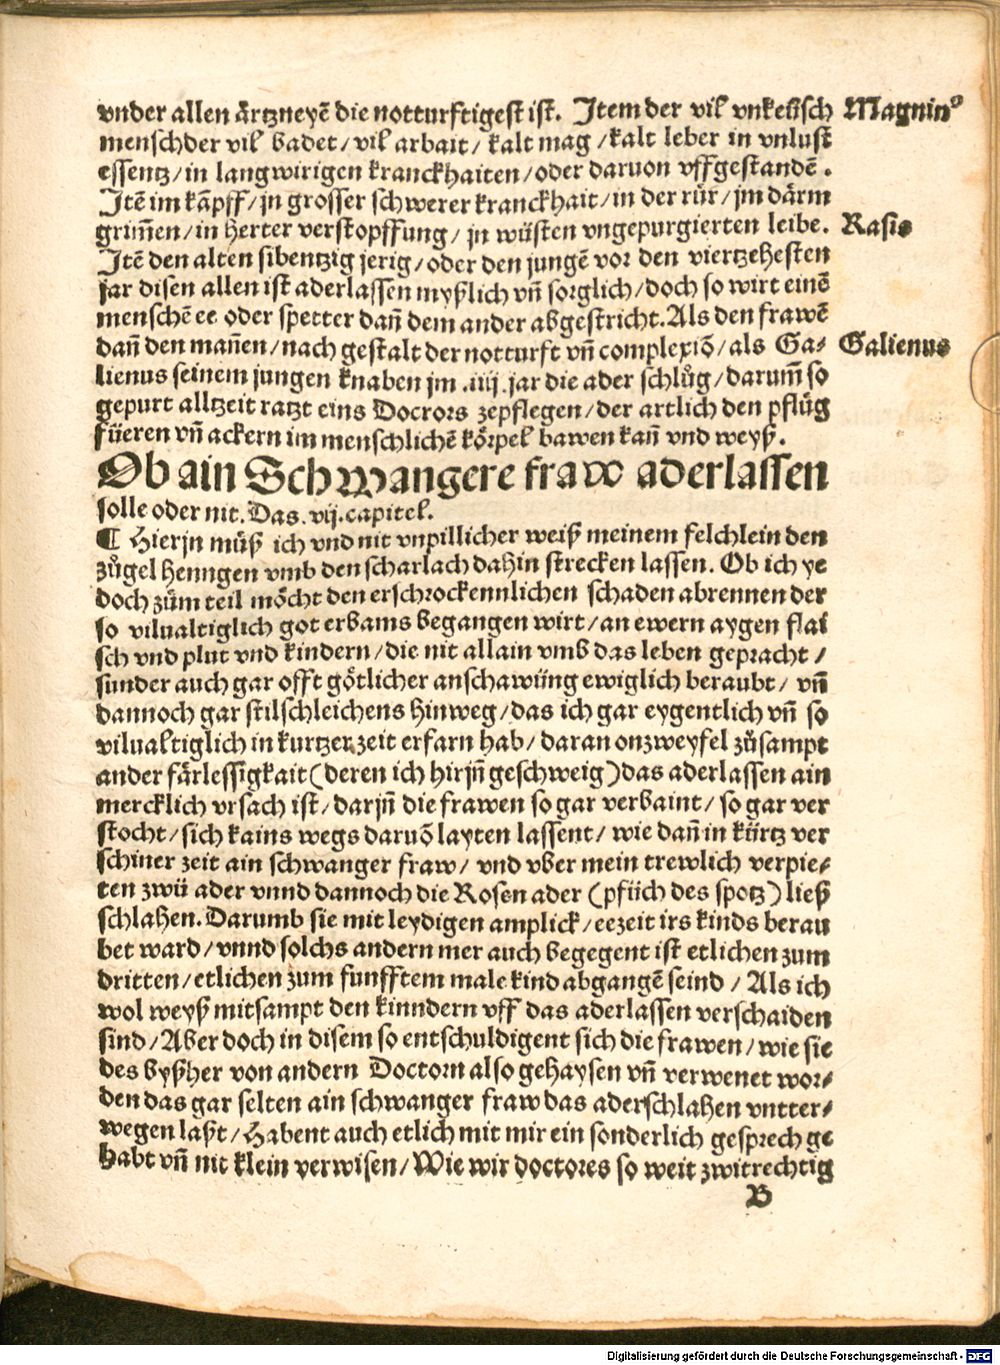 vnder allen ärtzneyē die notturftigest ist. Item der vil vnkeüsch Magninꝰ
menschder vil badet/vil arbait/ kalt mag /kalt leber in vnlust
essentz/in langwirigen kranckhaiten/oder daruon vffgestandē.
Itē im kāpff/jn grosser schwerer kranckhait/in der rür/jm därm
grim̄en/in herter verstopffung/ jn wüsten vngepurgierten leibe. Rasis
Itē den alten sibentzig jerig/oder den jungē vor den viertzehesten
jar disen allen ist aderlassen myßlich vn̄ sorglich/doch so wirt einē
menschē ee oder spetter dan̄ dem ander abgestricht. Als den frawē
dan̄ den man̄en/nach gestalt der notturft vn̄ complexiō/als Ga- Galienus
lienus seinem jungen knaben jm .iiij. jar die ader schlůg/darum̄ so
gepurt alltzeit ratzt eins Docrors zepflegen/der artlich den pflůg
füeren vn̄ ackern im menschlichē körpel bawen kan̄ vnd weyß.
Ob ain Schwangere fraw aderlassen
solle oder nit. Das .vij. capitel.
¶ Hierjn můß ich vnd nit vnpillicher weiß meinem felchlein den
zůgel henngen vmb den scharlach dahin strecken lassen. Ob ich ye
doch zům teil möcht den erschrockennlichen schaden abrennen der
so viluältiglich got erbams begangen wirt/an ewern aygen flai
sch vnd plut vnd kindern/die nit allain vmb das leben gepracht/
sunder auch gar offt götlicher anschawüng ewiglich beraubt/ vn̄
dannoch gar stilschleichens hinweg/das ich gar eygentlich vn̄ so
viluältiglich in kurtzer zeit erfarn hab/daran onzweyfel zůsampt
ander färlessigkait(deren ich hirjn̄ geschweig)das aderlassen ain
mercklich vrsach ist/darjn̄ die frawen so gar verbaint/so gar ver
stocht/sich kains wegs daruō layten lassent/wie dan̄ in kürtz ver
schiner zeit ain schwanger fraw/ vnd vber mein trewlich verpie-
ten zwü ader vnnd dannoch die Rosen ader (pfüch des spotz) ließ
schlahen. Darumb sie mit leydigen amplick/eezeit irs kinds berau
bet ward/vnnd solchs andern mer auch begegent ist etlichen zum
dritten/etlichen zum funfftem male kind abgangē seind /Als ich
wol weyß mitsampt den kinndern vff das aderlassen verschaiden
sind/Aber doch in disem so entschuldigent sich die frawen/wie sie
des byßher von andern Doctorn also gehaysen vn̄ verwenet wor-
den das gar selten ain schwanger fraw das aderschlahen vntter-
wegen laßt/Habent auch etlich mit mir ein sonderlich gesprech ge
habt vn̄ nit klein verwisen/Wie wir doctores so weit zwitrechtig
B
Digitalisierung gefördert durch die Deutsche Forschungsgemeinschaft - DFG